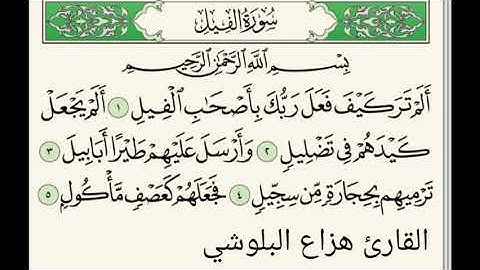 سُورَةُ الفِيلِ
بِسْمِ اللَّهِ الرَّحْمَٰنِ الرَّحِيمِ
أَلَمْ تَرَ كَيْفَ فَعَلَ رَبُّكَ بِأَصْحَابِ الْفِيلِ ١ أَلَمْ يَجْعَلْ
كَيْدَهُمْ فِي تَضْلِيلٍ ٢ وَأَرْسَلَ عَلَيْهِمْ طَيْرًا أَبَابِيلَ ٣
تَرْمِيهِم بِحِجَارَةٍ مِّن سِجِّيلٍ ٤ فَجَعَلَهُمْ كَعَصْفٍ مَّأْكُولٍ ٥
القارئ هزاع البلوشي